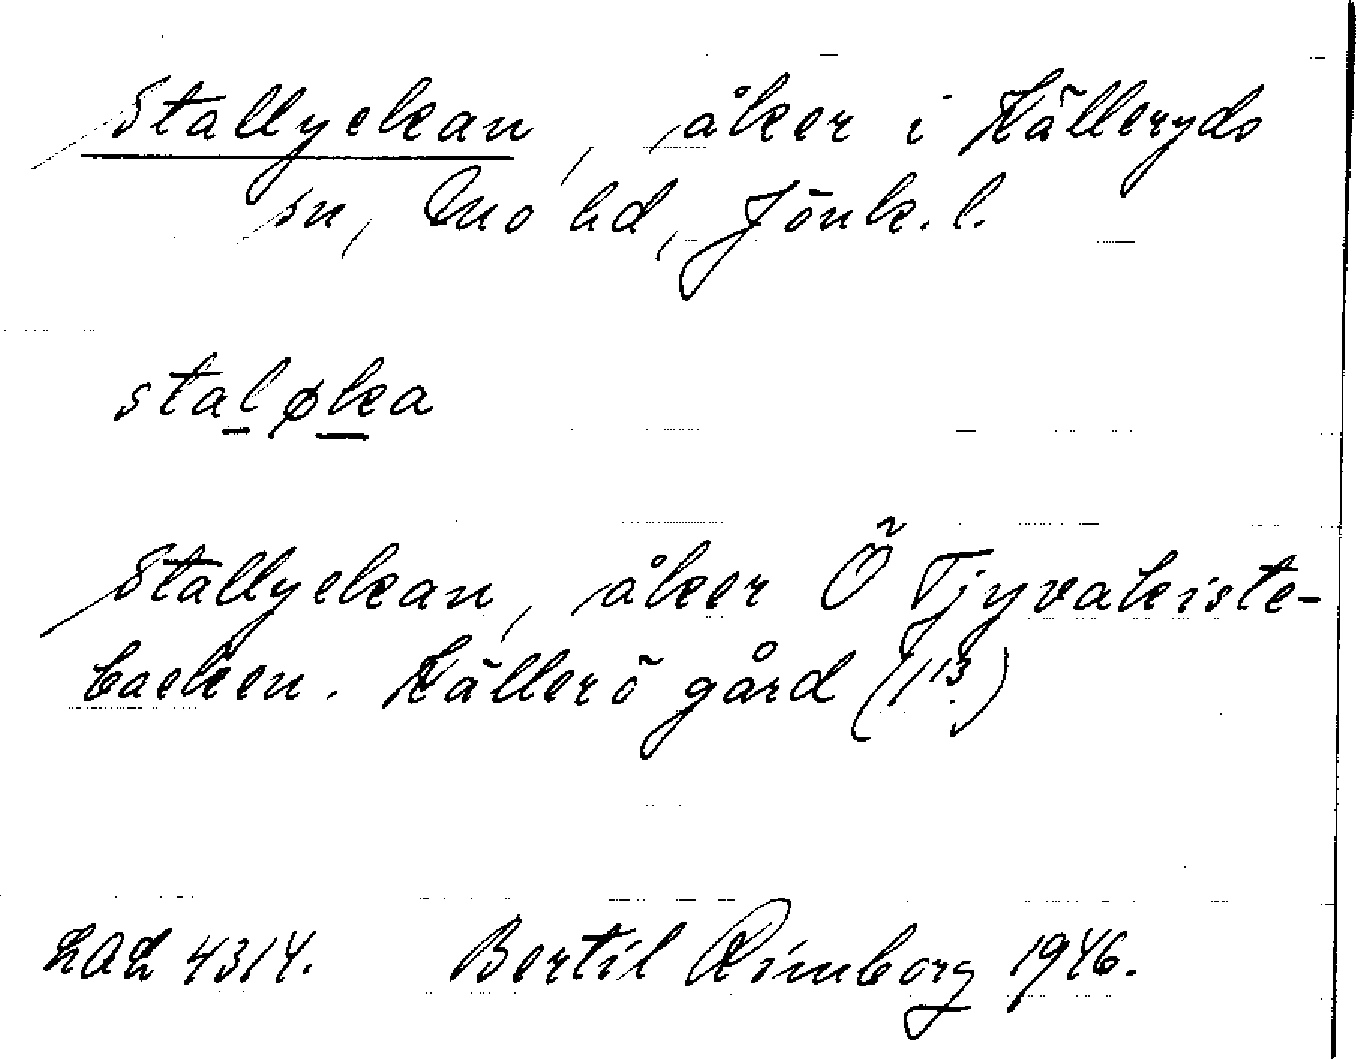 Stallyckan, åker i Källeryds
sn, Mo hd, Jönk. l.
staløka
Stallyckan, åker Ö Tjyvakiste-
backen. Källerö gård (1¹³.)
LAL 4314. Bertil Rimborg 1946.